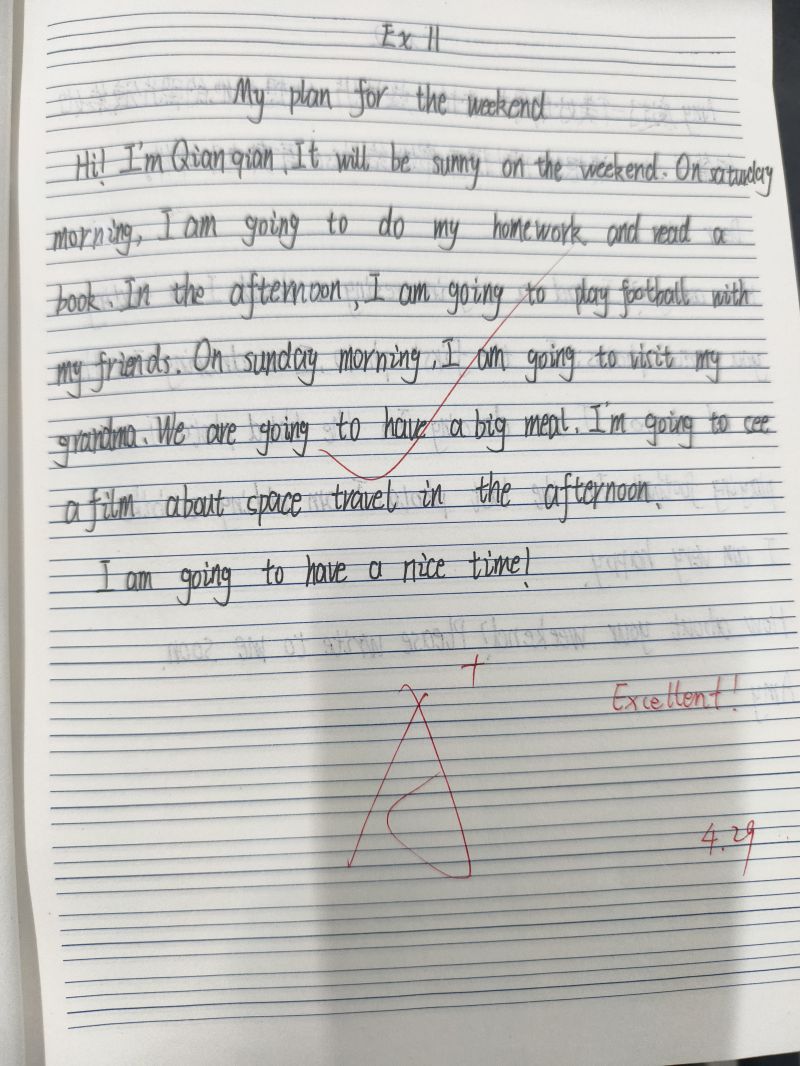 Ex 11
My plan for the weekend
Hi! I'm Qianqian. It will be sunny on the weekend. On saturday
morning, I am going to do my homework and read a
book. In the afternoon, I am going to play football with
my friends. On sunday morning, I am going to visit my
grandma. We are going to have a big meal. I'm going to see
a film about space travel in the afternoon.
I am going to have a nice time!
A+
Excellent!
4.29